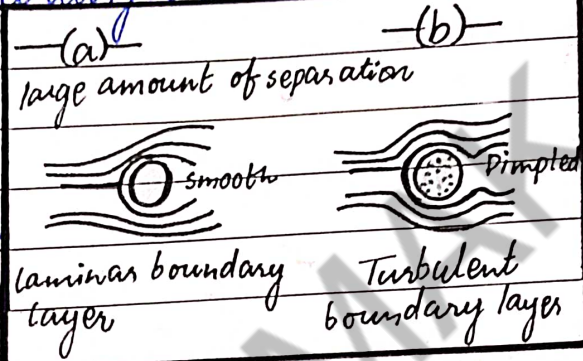 (a) (b)
large amount of separation
smooth
Dimpled
laminar boundary
layer
Turbulent
boundary layer